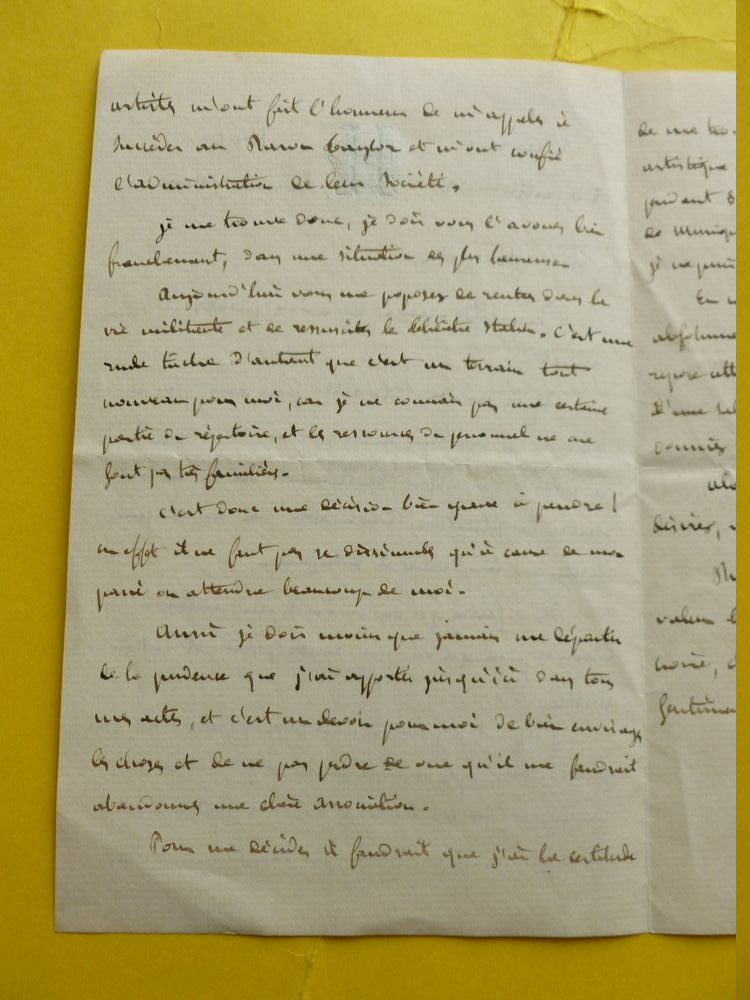 artistes m'ont fait l'honneur de m'appeler à
succéder au Baron Taylor et m'ont confié
l'administration de leur Société.
je me trouve donc, je dois vous l'avouer bien
franchement, dans une situation des plus heureuses.
Aujourd'hui vous me proposez de rentrer dans la
vie militante et de ressusciter le théâtre Italien. C'est une
rude tâche d'autant que c'est un terrain tout
nouveau pour moi, car je ne connais pas une certaine
partie du répertoire, et les ressources du personnel ne me
sont pas très familières.
C'est donc une décision bien grave à prendre!
en effet il ne faut pas se dissimuler qu'à cause de mon
passé on attendra beaucoup de moi.
Aussi je dois moins que jamais me départir
de la prudence que j'ai apportée jusqu'ici dans tous
mes actes, et c'est un devoir pour moi de bien envisager
les choses et de ne pas perdre de vue qu'il me faudrait
abandonner une chère association.
Pour me décider il faudrait que j'aie la certitude
de me
artistique
pendant
de
je ne puis
En
absolume
repose
D'une
données
désirez,
valeur